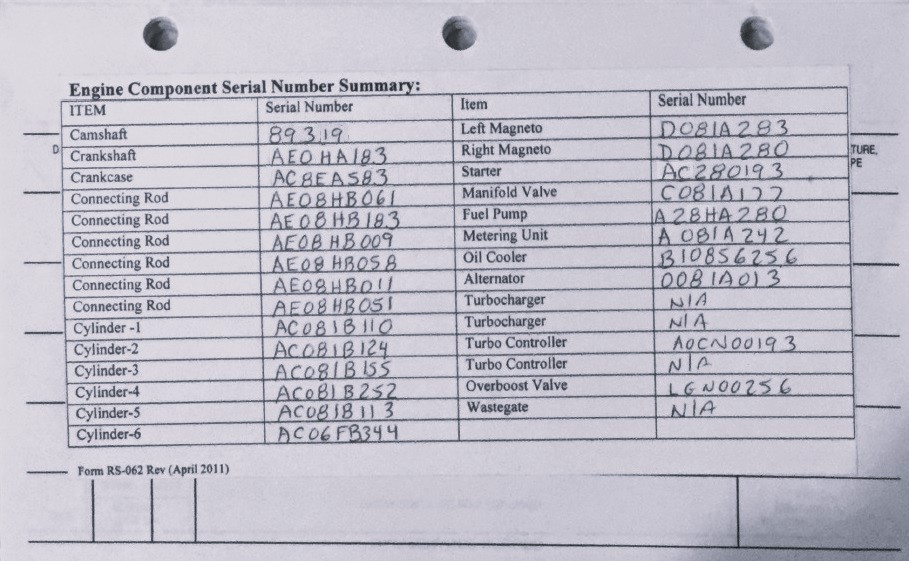 Engine Component Serial Number Summary:
ITEM Serial Number Item Serial Number
Camshaft 89319 Left Magneto D081A283
Crankshaft AEOHA183 Right Magneto D081A280
Crankcase AC8EA583 Starter AC280193
Connecting Rod AE08HB061 Manifold Valve C081A177
Connecting Rod AE08HB183 Fuel Pump A28HA280
Connecting Rod AE08HB009 Metering Unit A081A242
Connecting Rod AE08HB058 Oil Cooler B10856256
Connecting Rod AE08HB011 Alternator 0081A013
Connecting Rod AE08HB051 Turbocharger N/A
Cylinder -1 AC081B110 Turbocharger N/A
Cylinder-2 AC081B124 Turbo Controller A0CN00193
Cylinder-3 AC081B155 Turbo Controller N/A
Cylinder-4 AC081B252 Overboost Valve LGN00256
Cylinder-5 AC081B113 Wastegate N/A
Cylinder-6 AC06FB344
Form RS-062 Rev (April 2011)
D
TURE,
PE